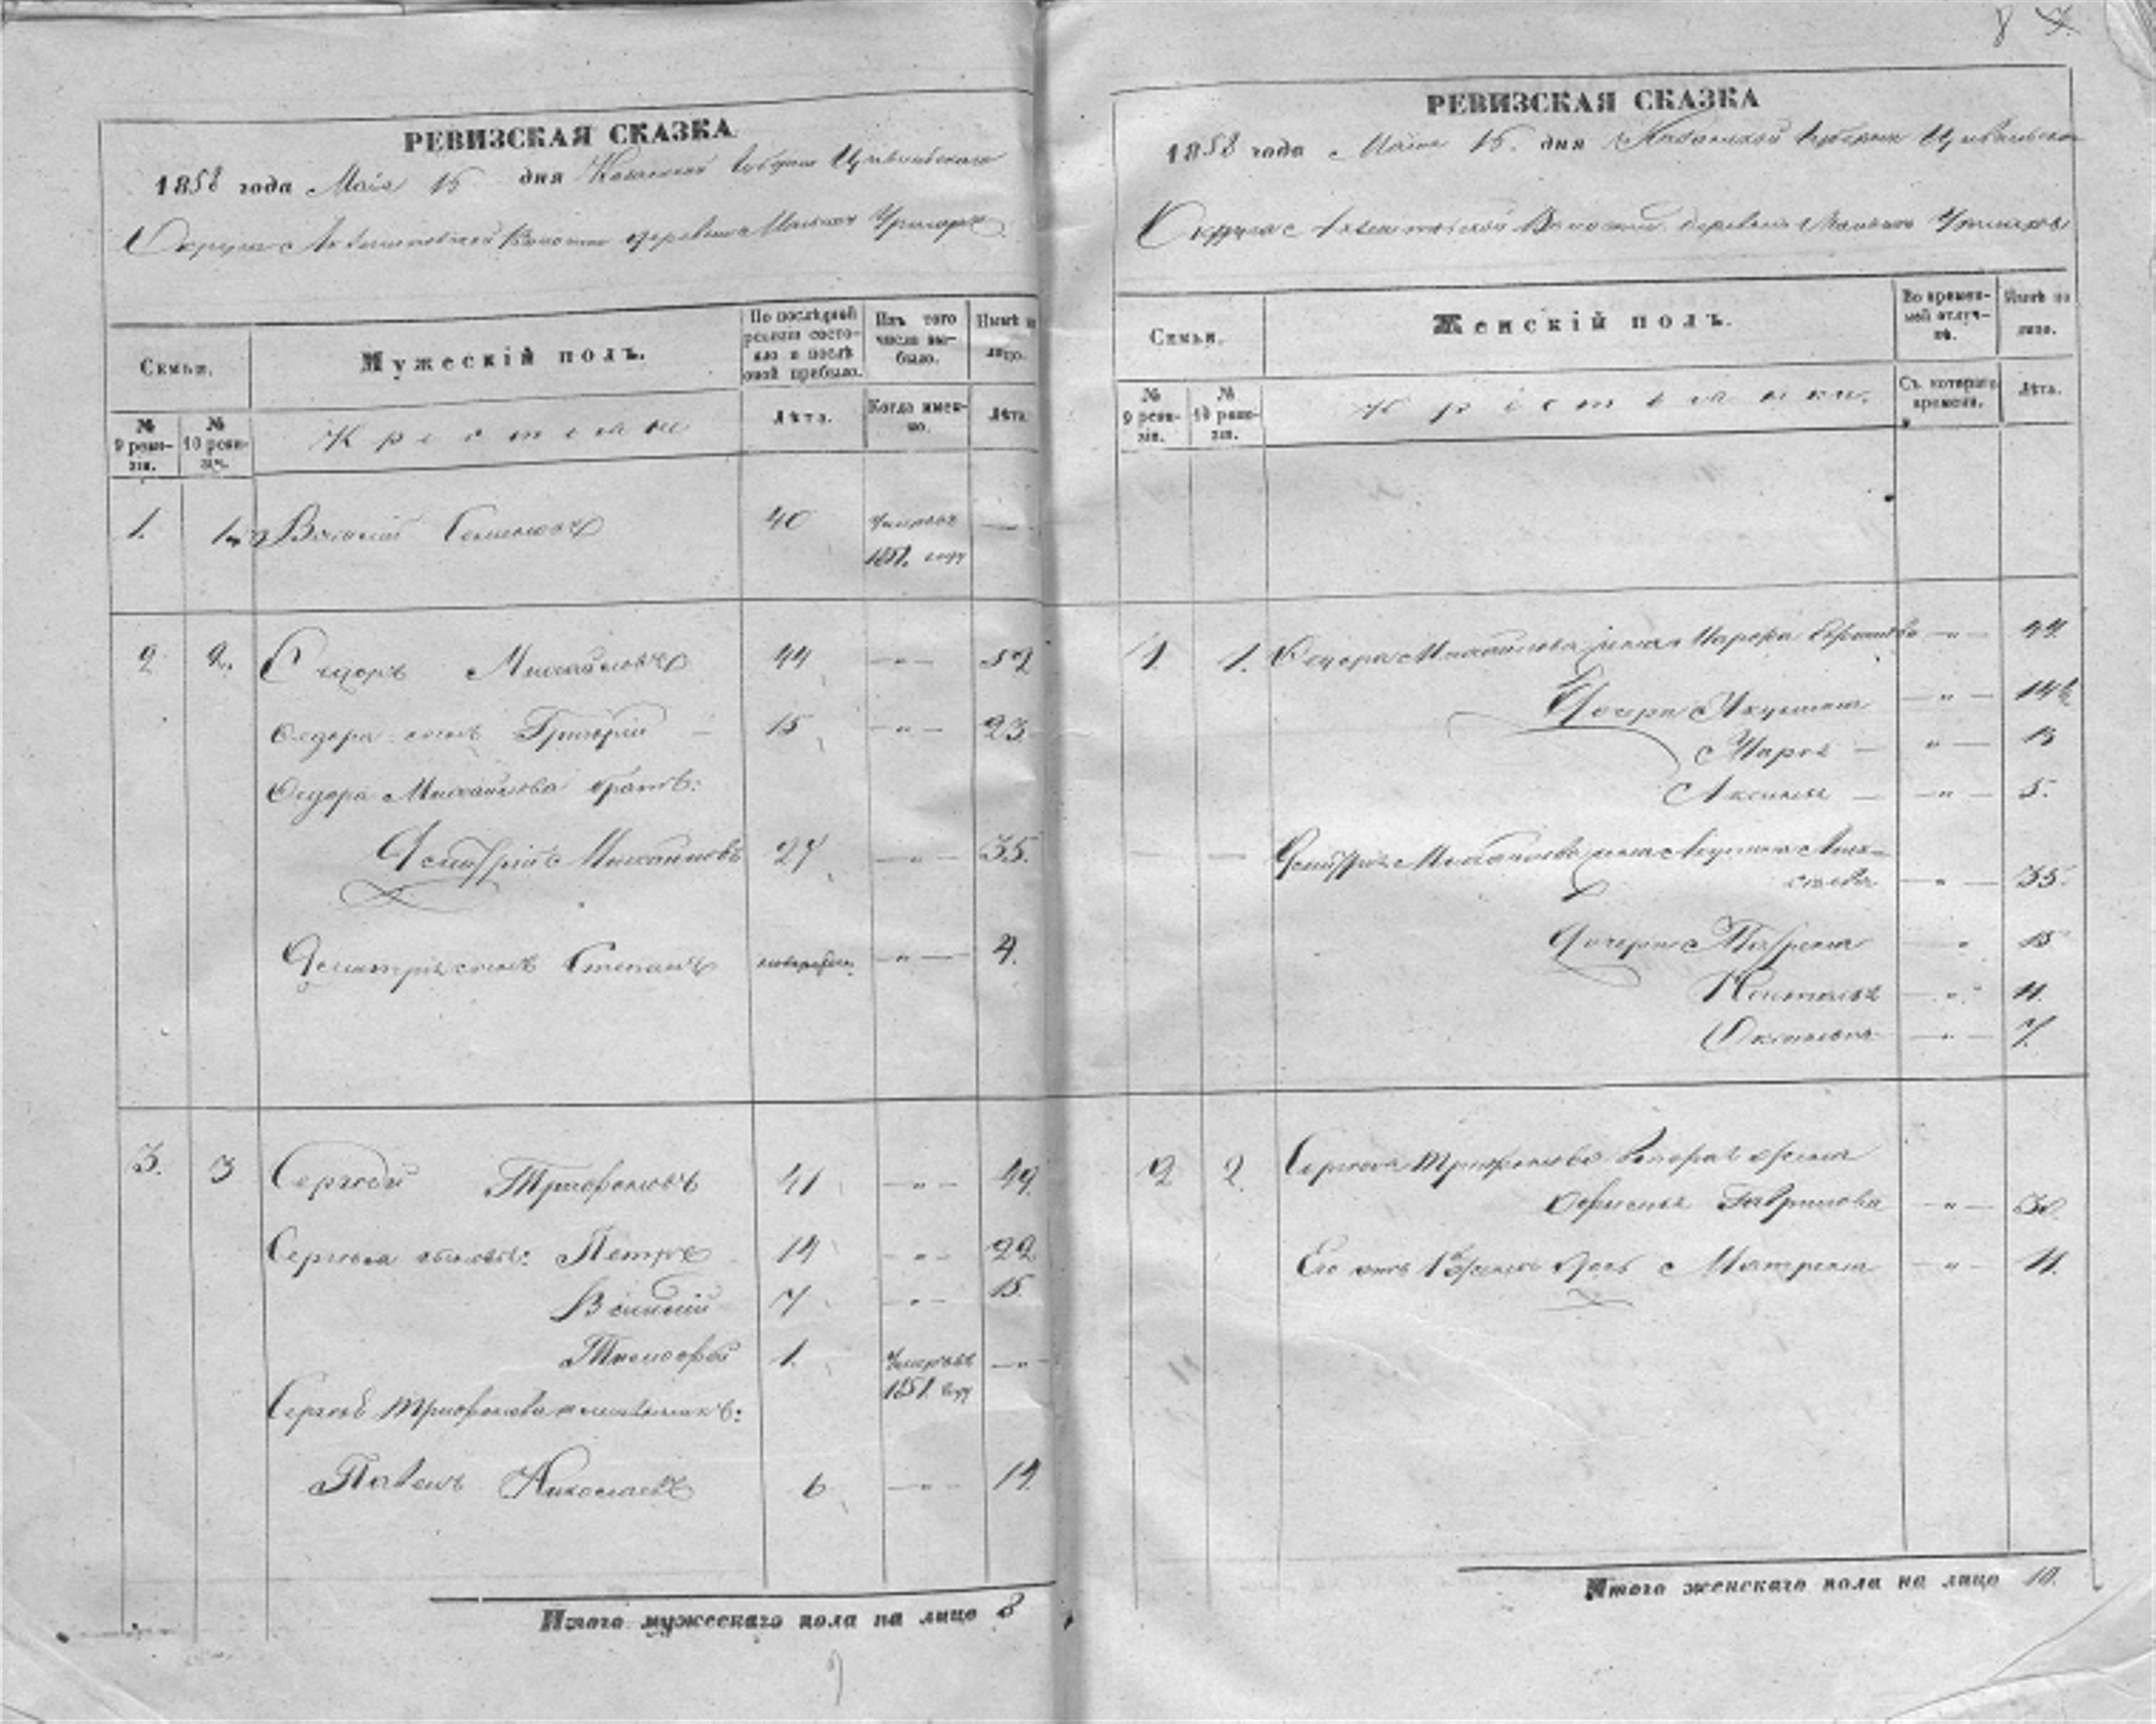 8 7.
РЕВИЗСКАЯ СКАЗКА
1858 года Мая 15 дня Казанской Губернии Цивильскаго
Округа Волости деревни Малыхъ
Семьи.
Мужескій полъ.
По послѣдней ревизіи состояло и послѣ оной прибыло.
Изъ того числа выбыло.
Нынѣ на лицо.
№ 9 ревизіи.
№ 10 ревизіи.
Крестьяне
Лѣта.
Когда именно.
Лѣта.
1. 1. Василій Семеновъ 40 Умеръ въ —
1851. году
2 2. Сидоръ Михайловъ 44 — „ — 52
сынъ Григорій — 15 — „ — 23.
Михайлова братъ:
Димитрій Михайловъ 27 — „ — 35.
сынъ Степанъ новорожден. — „ — 4.
3. 3 Сергѣй Трифоновъ 41 — „ — 49.
Сергѣя сыновья: Петръ 14 „ 22
Василій 7 — „ — 15.
Тимофей 1. Умеръ въ — „ —
1851. году
Сергѣя Трифонова племянникъ:
Павелъ Николаевъ 6 — „ — 14.
Итого мужескаго пола на лицо 8
РЕВИЗСКАЯ СКАЗКА
1858 года Мая 15. дня Казанской Губерніи Цивильскаго
Округа Волости деревни Малыхъ
Семьи.
Женскій полъ.
Во временной отлучкѣ.
Нынѣ на лицо.
№ 9 ревизіи.
№ 10 ревизіи.
Крестьянки.
Съ котораго времени.
Лѣта.
1 1. Михайлова жена — „ — 44.
Дочери Акулина — „ — 14½
— „ — 13
Аксинья — — „ — 5.
Михайлова жена Акулина
— „ — 35.
Дочери 15
Настасья — „ — 11.
— „ — 7.
2 2. Сергѣя Трифонова вторая жена
Гаврилова — „ — 30.
Его отъ 1й жены дочь Матрена — „ — 11.
Итого женскаго пола на лицо 10.